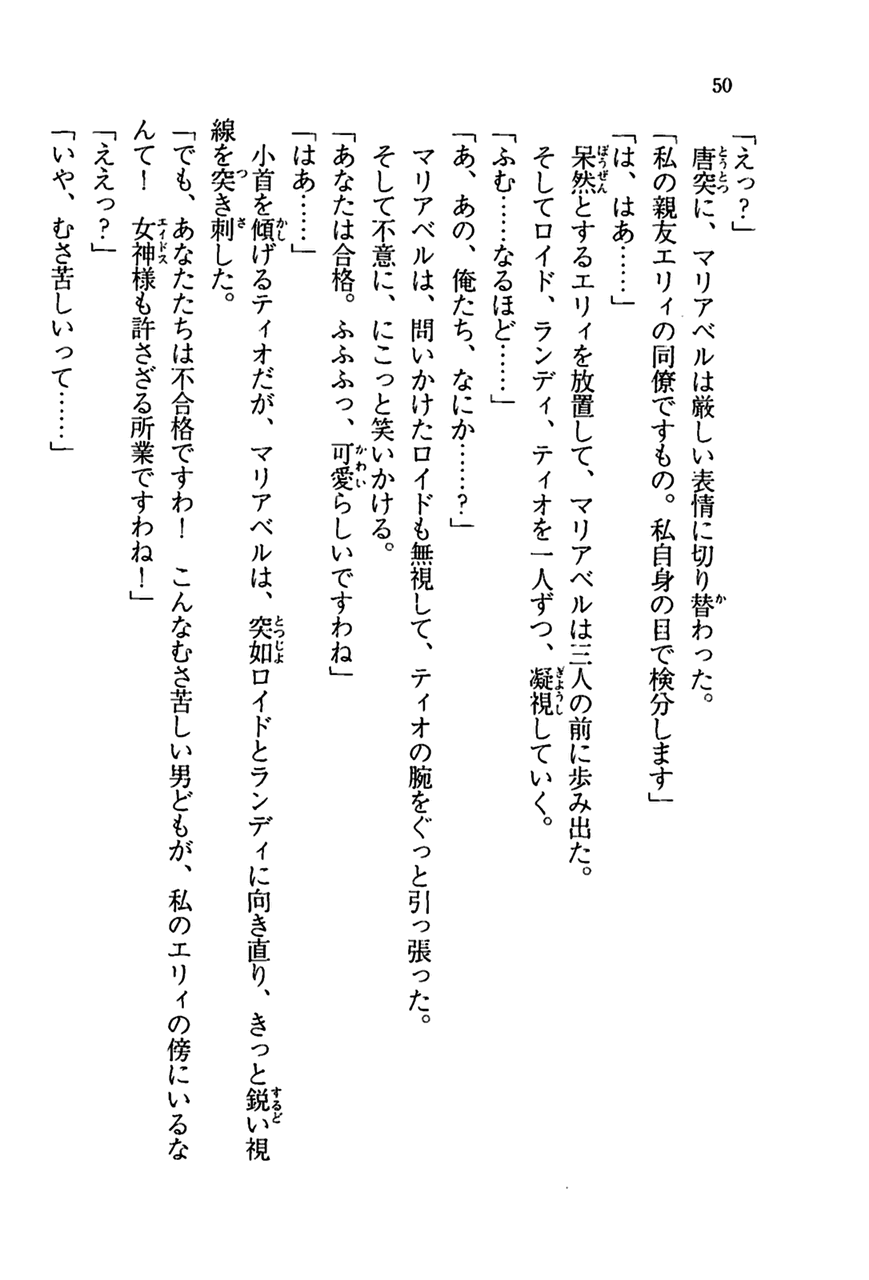 50
「えっ?」
唐突に、マリアベルは厳しい表情に切り替わった。
「私の親友エリィの同僚ですもの。私自身の目で検分します」
「は、はあ……」
呆然とするエリィを放置して、マリアベルは三人の前に歩み出た。
そしてロイド、ランディ、ティオを一人ずつ、凝視していく。
「ふむ……なるほど……」
「あ、あの、俺たち、なにか……?」
マリアベルは、問いかけたロイドも無視して、ティオの腕をぐっと引っ張った。
そして不意に、にこっと笑いかける。
「あなたは合格。ふふふっ、可愛らしいですわね」
「はあ……」
小首を傾げるティオだが、マリアベルは、突如ロイドとランディに向き直り、きっと鋭い視
線を突き刺した。
「でも、あなたたちは不合格ですわ! こんなむさ苦しい男どもが、私のエリィの傍にいるな
んて! 女神様も許さざる所業ですわね!」
「ええっ?」
「いや、むさ苦しいって……」